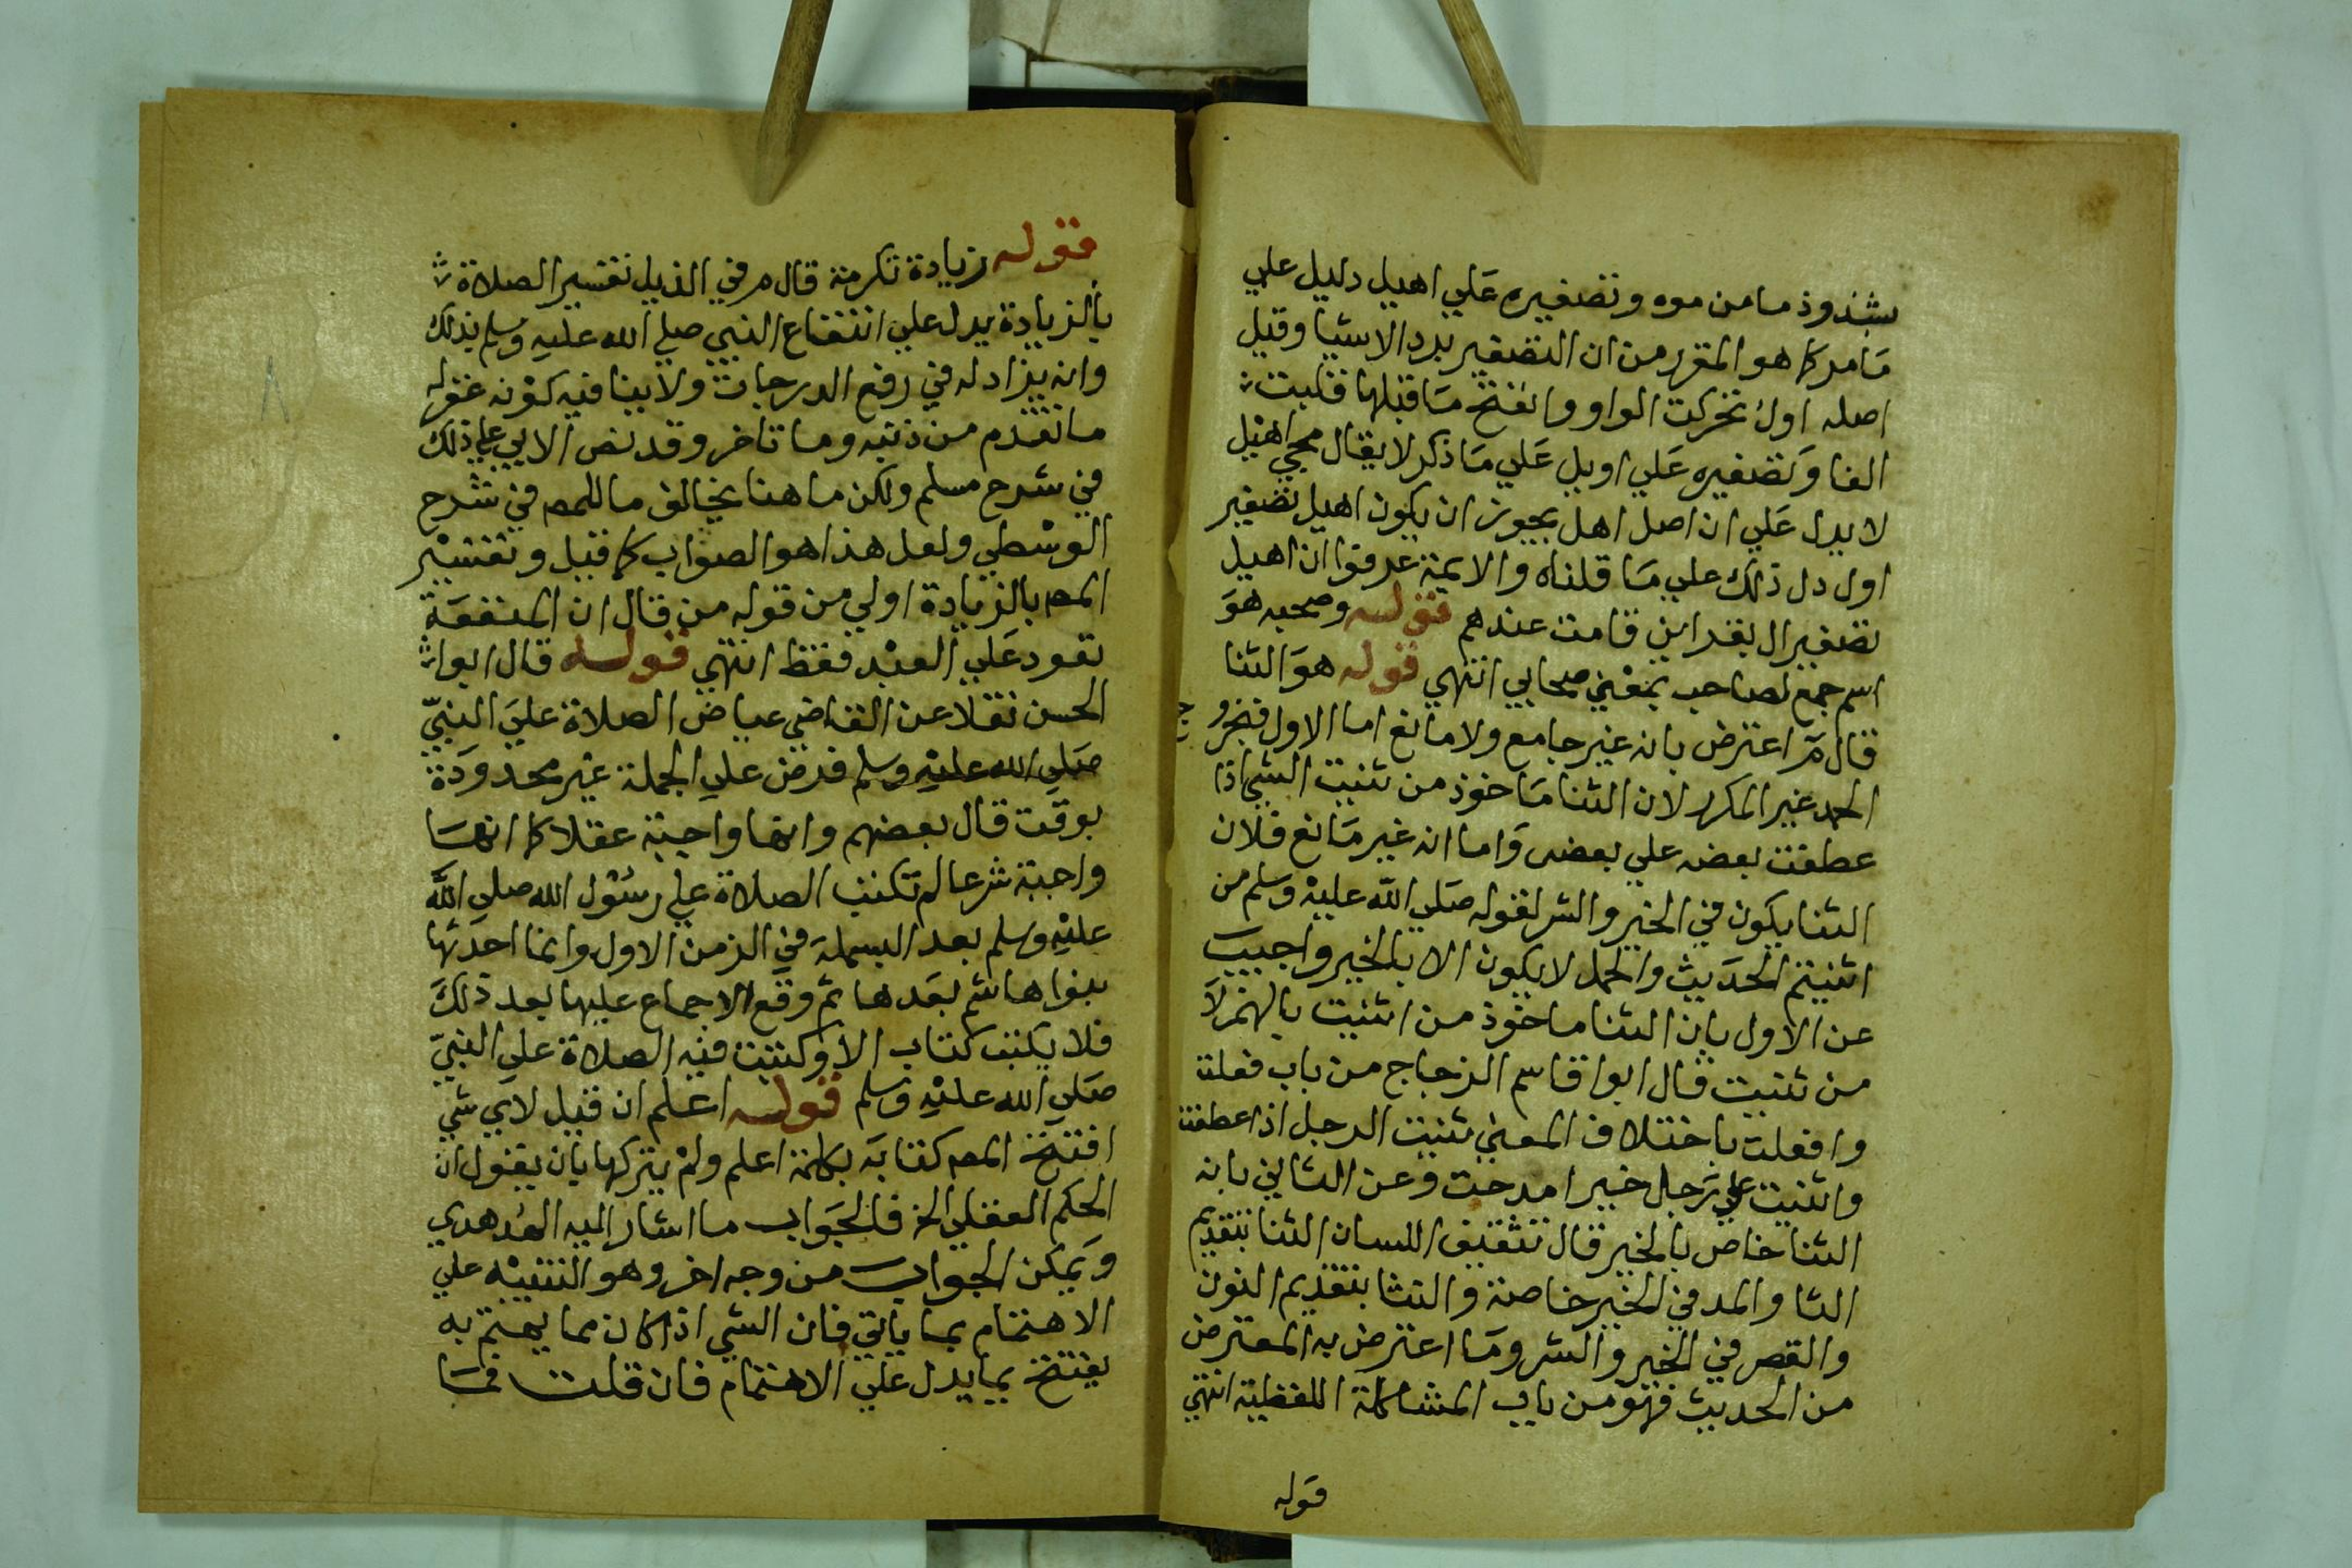 بشذوذ ما من موه وتصغيره علي اهيل دليل علي
مامر كما هو المقرر من ان التصغير يرد الاشيا وقيل
اصله اول تحركت الواو وانفتح ما قبلها فقلبت
الفا وتصغيره علي اويل علي ما ذكر لا يقال مجي اهيل
لا يدل علي ان اصل اهل يجوز ان يكون اهيل تصغير
اول دل ذلك علي ما قلناه والايمة عرفوا ان اهيل
تصغير ال بقراين قامت عندهم قوله وصحبه هو
اسم جمع لصاحب بمعني صحابي انتهي قوله هو الثنا
قال م اعترض بانه غير جامع ولا مانع اما الاول فبخرو
ج
الحمد غير المكرر لان الثنا ماخوذ من ثنيت الشي اذا
عطفت بعضه علي بعض واما انه غير مانع فلان
الثنا يكون في الخير والشر لقوله صلي الله عليه وسلم من
اثنيتم الحديث والحمد لا يكون الا بالخير واجيب
عن الاول بان الثنا ماخوذ من اثنيت بالهمز لا
من ثنيت قال ابوا قاسم الزجاج من باب فعلت
وافعلت باختلاف المعني ثنيت الرجل اذا عطفت
واثنيت علي رجل خيرا مدحت وعن الثاني بانه
الثنا خاص بالخير قال تثقيف اللسان الثنا بتقديم
الثا والمد في الخير خاصة والنثا بتقديم النون
والقصر في الخير والشر وما اعترض به المعترض
من الحديث فهو من باب المشاكلة اللفظية انتهي
قوله
قوله زيادة تكرمة قال م في الذيل تفسير الصلاة
بالزيادة يدل علي انتفاع النبي صلي الله عليه وسلم بذلك
وانه يزاد له في رفع الدرجات ولا ينافيه كونه غفر له
ما تقدم من ذنبه وما تاخر وقد نص الابي علي ذلك
في شرح مسلم ولكن ما هنا يخالف ما للمص في شرح
الوسطي ولعل هذا هو الصواب كما قيل وتفسير
المص بالزيادة اولي من قوله من قال ان المنفعة
تعود علي العبد فقط انتهي قوله قال ابوا
الحسن نقلا عن القاضي عياض الصلاة علي النبي
صلي الله عليه وسلم فرض علي الجملة غير محدودة
بوقت قال بعضهم وانها واجبة عقلا كما انها
واجبة شرعا لم تكتب الصلاة علي رسول الله صلي الله
عليه وسلم بعد البسملة في الزمن الاول وانما احدثها
بنوا هاشم بعدها ثم وقع الاجماع عليها بعد ذلك
فلا يكتب كتاب الا وكتبت فيه الصلاة علي النبي
صلي الله عليه وسلم قوله اعلم ان قيل لاي شي
افتتح المص كتابه بكلمة اعلم ولم يتركها بان يقول ان
الحكم العقلي الخ فالجواب ما اشار اليه الهدهدي
ويمكن الجواب من وجه اخر وهو التنبيه علي
الاهتمام بما ياتي فان الشي اذا كان مما يهتم به
يفتتح بما يدل علي الاهتمام فان قلت فما